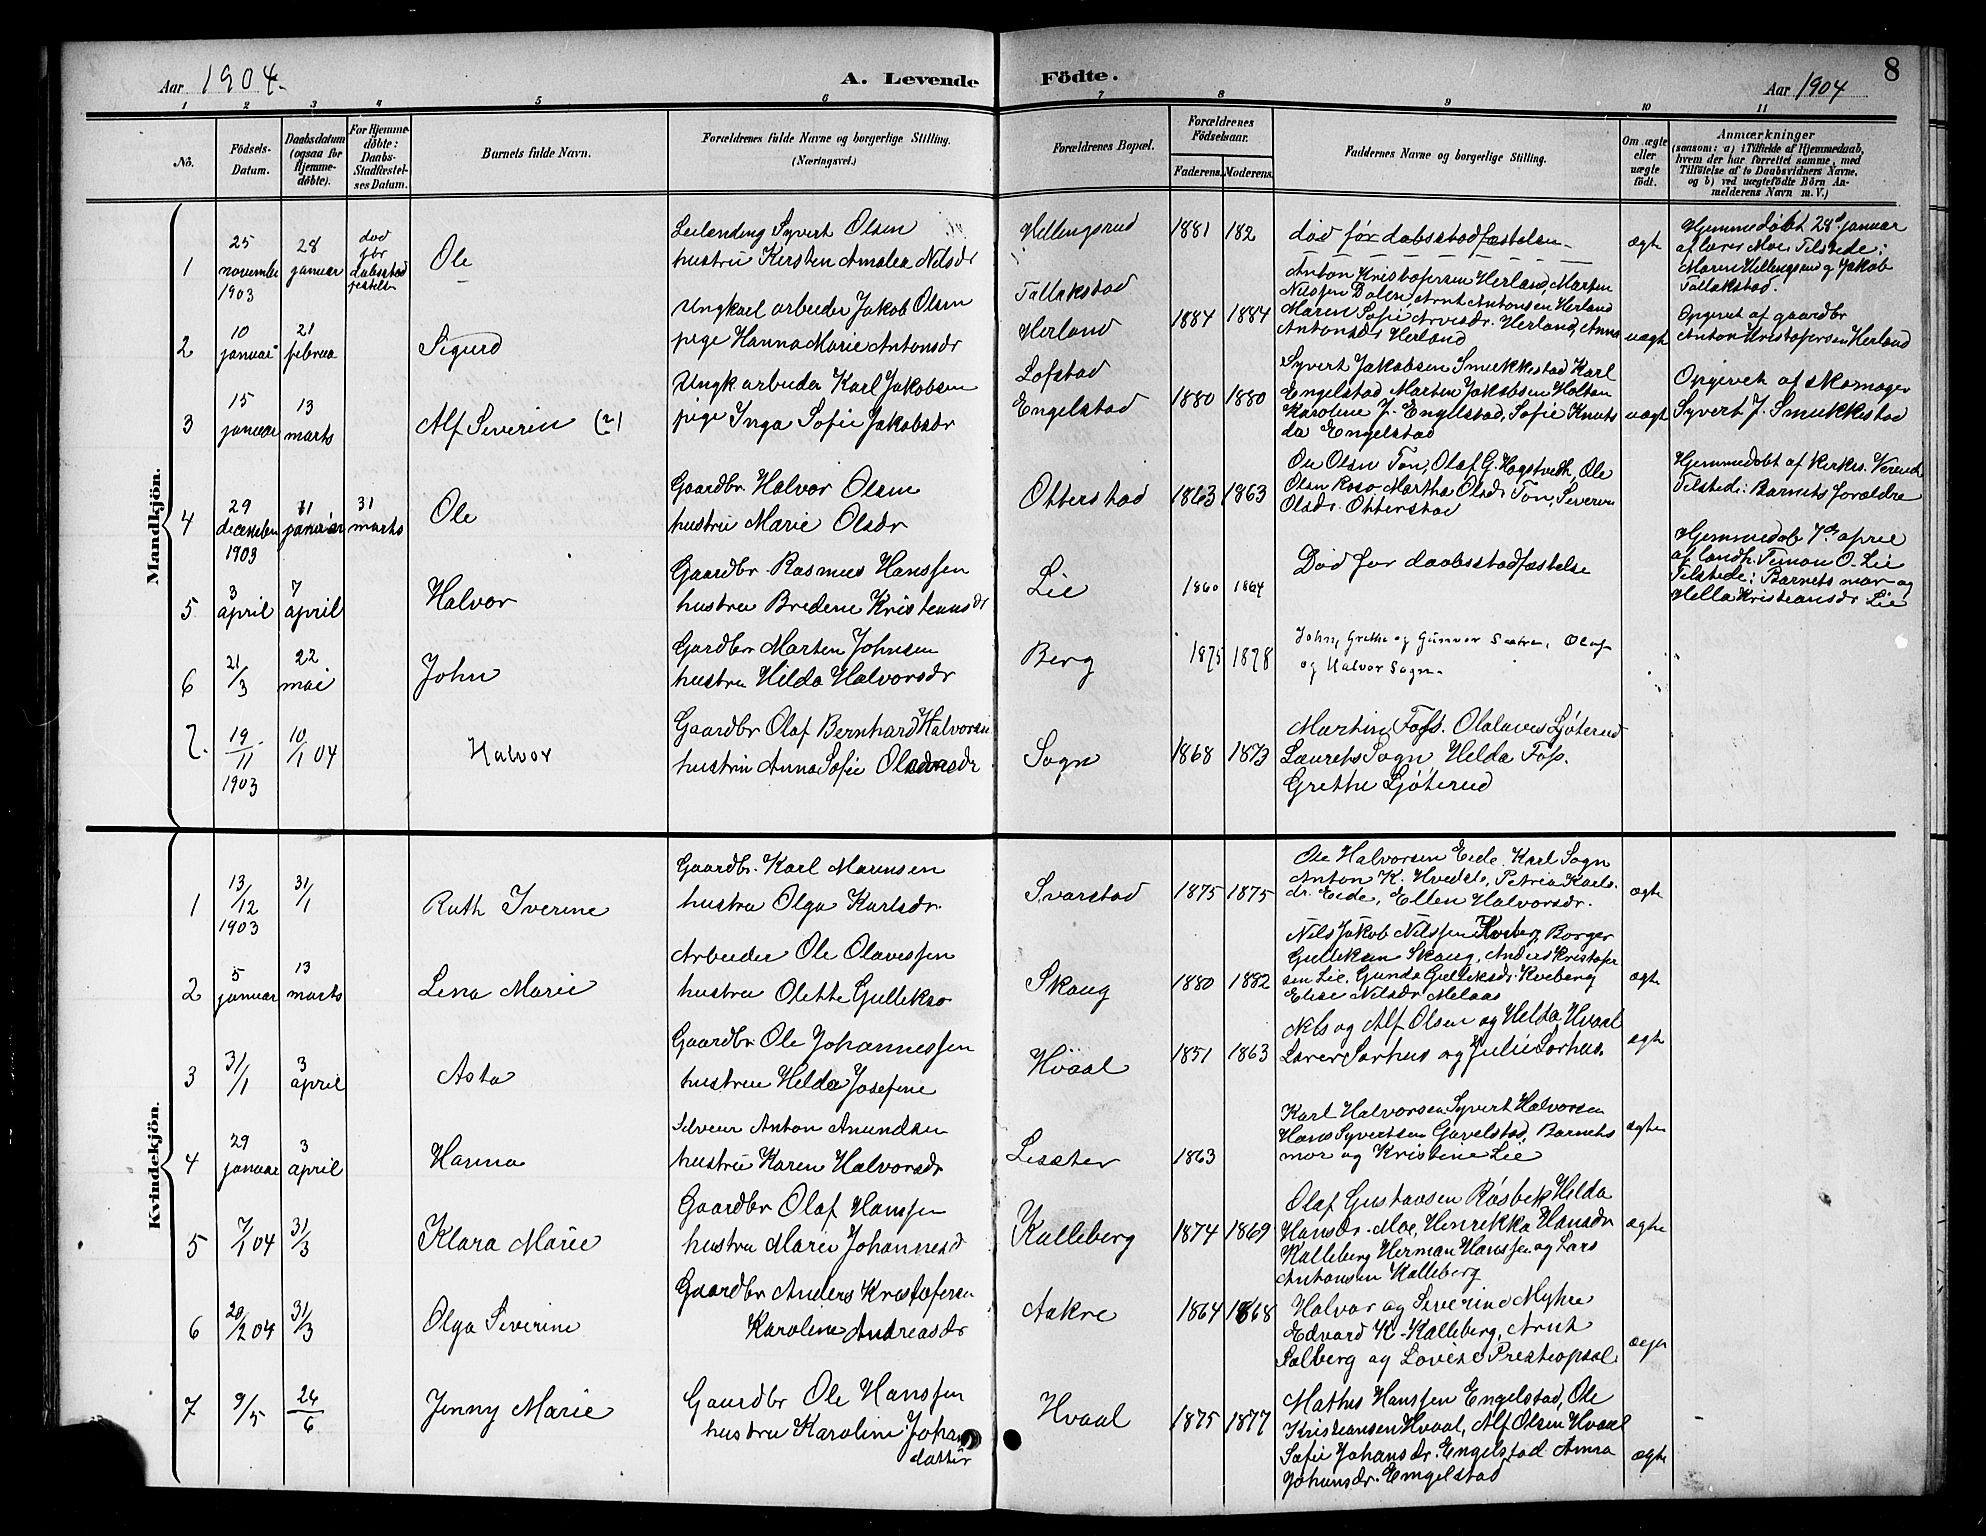 Aar 1904.
A. Levende Födte.
Aar 1904
8
1 2 3 4 5 6 7 8 9 10 11
No.
Födsels-Datum.
Daabsdatum (ogsaa for Hjemme-døbte).
For Hjemme-døbte: Daabs-Stadfæstel-ses Datum.
Barnets fulde Navn.
Forældrenes fulde Navne og borgerlige Stilling.
(Næringsvei.)
Forældrenes Bopæl.
Forældrenes Fødselsaar.
Faderens. Moderens.
Faddernes Navne og borgerlige Stilling.
Om ægte eller uægte født.
Anmærkninger
(saasom: a) i Tilfælde af Hjemmedaab, hvem der har forrettet samme, med Tilføielse af to Daabsvidners Navne, og b) ved uægtefødte Børn An-melderens Navn m. V.)
Mandkjön.
1
25 november 1903
28 januar
død før dabsstadfestels
Ole
Leilending Syvert Olsen
hustru Kirsten Amalea Nilsdr
Hellingsrud
1881 182
død før dabsstadfæstelsen
ægte
Hjemmedøbt 28d januar
af lærer Moe. Tilstede:
Maren Hellingsrud og Jakob
Tallakstad.
2
10 januar
21 februa
Sigurd
Ungkarl arbeider Jakob Olsen
pige Hanna Marie Antonsdr
Tallakstad
Herland
1884 1884
Anton Kristofersen Herland, Marten
Nilssen Dalen, Arnt Antonsen Herland
Maren Sofie Arvesdr. Herland, Anna
Antonsdr Herland
uægte
Opgivet af gaardbr
Anton Kristofersen Herland
3
15 januar
13 marts
Alf Severin (2)
Ungk arbeider Karl Jakobsen
pige Inga Sofie Jakobsdr
Lofstad
Engelstad
1880 1880
Syvert Jakobsen Smukkestad Karl
Engelstad, Marten Jakobsen Holtan
Karoline J. Engelstad, Sofie Knuts
da Engelstad
uægte
Opgivet af skomager
Syvert J. Smukkestad
4
29 december 1903
11 januar
31 marts
Ole
Gaardbr. Halvor Olsen
hustru Marie Olsdr
Otterstad
1863 1863
Ole Olsn Ton, Olaf G. Hogstvedt Ole
Olsn Roso Martha Olsdr Ton, Severin
Olsdr. Otterstad
Hjemmedøbt af kirkes.
Tilstede: Barnets foraldre
5
3 april
7 april
Halvor
Gaardbr. Rasmus Hanssen
hustru Bredine Kristensdr
Lie
1860 1864
Død før daabsstadfæstelse
Hjemmedøb 7de april
af landh. Timan O. Lie
Tilstede: Barnets mor og
Hella Kristiansdr Lie
6
21/3
22 mai
John
Gardbr Marten Johnsen
hustru Hilda Halvorsdr
Berg
1875 1878
John, Grethe og Gunvor Saatra, Olaf
og Halvor Sogn.
7.
19/11 1903
10/1 04
Halvor
Gaardbr Olaf Bernhard Halvorsen
hustru Anna Sofie
Sogn
1868 1873
Martin Foss. Olalaves Ljøterud
Laurets Sogn, Helda Foss.
Grethe Ljøterud
Kvindekjön.
1
13/12 1903
31/1
Ruth Iverine
Gaardbr. Karl Marensen
hustru Olga Karlsdr.
Svarstad
1875 1875
Ole Halvorsen Eide, Karl Sogn
Anton K. Hvedste, Petria Karls.
dr. Eide, Ellen Halvorsdr.
ægte
2
5 januar
13 marts
Lena Marie
Arbeider Ole Olavessen
hustru Olette Gulleksø
Skaug
1880 1882
Nils Jakob Nilssen Kveberg, Borger
Gulleksen Skaug, Anders Kristofer
sen Lie, Gunda Gulleksdr. Kveberg
Elise Nilsdr Melaas
ægte
3
31/1
3 april
Asta
Gaardbr. Ole Johannessen
hustru Helda Josefine
Hvaal
1851 1863
Nels og Alf Olsen og Helda Hvaal
Lærer Sørhus og Julie Sørhus.
ægte
4
29 januar
3 april
Hanna
Selveier Anton Amundsen
hustru Karen Halvorsdr
Lisseter
1863
Karl Halvorsen, Syvert Halvorsen
Hans Syvertsen Gavelstad, Barnets
mor og Kristine Lie
ægten
5
7/1 04
31/3
Klara Marie
Gaardbr Olaf Hanssen
hustru Maria Johannesd
Kalleberg
1874 1869
Olaf Gustavsen Røsbek Hilda
Hansdr. Moe, Henrikka Hansdr
Kalleberg Herman Hanssen og Lars
Antonsen Kalleberg
ægte
6
20/2 04
31/3
Olga Severine
Gaardbr Anders Kristofersen
Karoline Andreasdr
Aakre
1864 1868
Halvor og Severine Myhre
Edvard K. Kalleberg, Arnt
Solberg og Lovise Presteopsal
7
9/5
26/6
Jenny Marie
Gaardbr Ole Hanssen
hustru Karoline Johan
datter
Hvaal
1875 1877
Mathis Hanssen Engelstad, Ole
Kristiansen Hvaal, Alf Olsen Hvaal
Sofie Johansdr. Engelstad Anna
Johansdr. Engelstad
ægte